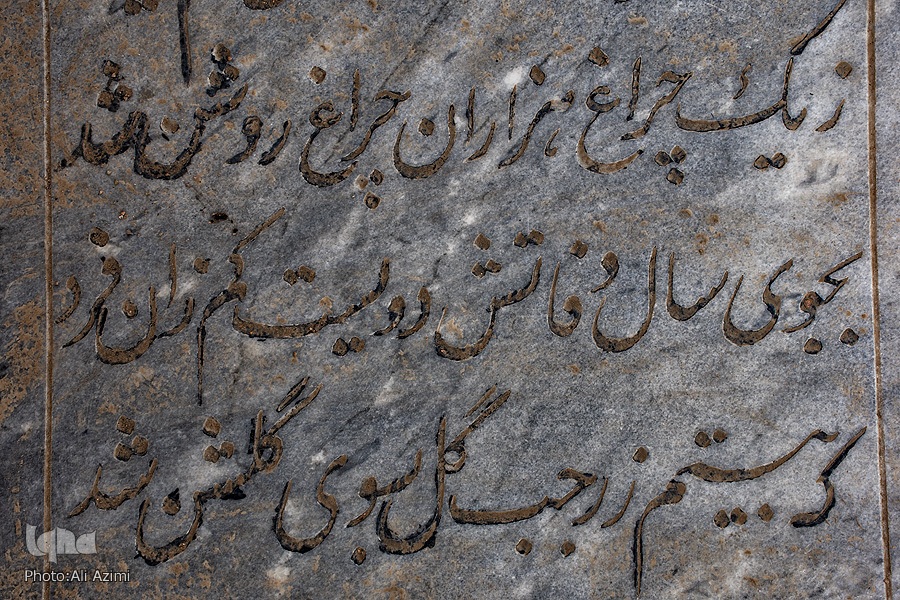 ز یک چراغ هزاران چراغ روشن شد
بجوی سال وفاتش دویست کم زان فرد
که بیستم ز رجب گل بسوی گلشن شد
iqna
Photo:Ali Azimi